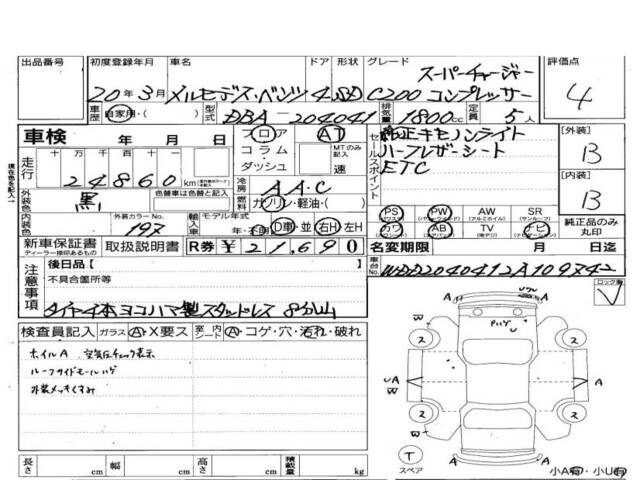 出品番号 初度登録年月 車名 ドア 形状 グレード 評価点
スーパーチャージャー
20年3月 メルセデス・ベンツ 4 SD C200 コンプレッサー 4
車歴 自家用・( ) 型式 DBA-204041 排気量 1800cc 定員 5人
車検 年 月 日 フロア AT 純正キセノンライト [外装]
コラム・ MTのみ記入 ハーフレザーシート B
ダッシュ 速 ETC
走行 十万 万 千 百 十 一 セールスポイント
24860 km 冷房 AAC [内装]
外装色 黒 色替車は色替と記入 燃料 ガソリン・軽油・( ) B
PS PW AW SR
内装色 外装カラーNo. 197 輸入車 モデル年式 年・不明 D車・並 右H 左H カワ AB TV ナビ 純正品のみ丸印
新車保証書 取扱説明書 R券 ¥21,690 名変期限 月 日迄
ディーラー捺印あるもの
現在色を記入
後日品[ ] 車台No. WDD2040412A109742
注意事項 不具合箇所等 ロック有
タイヤ4本ヨコハマ製スタッドレス 8分山
検査員記入 ガラス A・X要ス 室内シート A・コゲ・穴・汚れ・破れ
ホイルA 空気圧チェック表示
ルーフサイドモールハゲ
外装メッキくすみ
U A W
W
2 2
A A
W
2 2
T
スペア A
長さ cm 幅 cm 高さ cm 積載量 kg 小A有・小U有